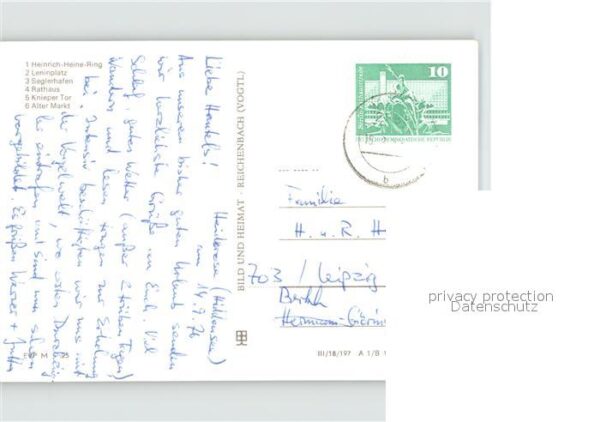 1 Heinrich-Heine-Ring
2 Leninplatz
3 Seglerhafen
4 Rathaus
5 Knieper Tor
6 Alter Markt
Heiderose (Hiddensee)
am 14.7.76
Liebe Handels!
Aus unserem bisher guten Urlaub senden
wir herzlichste Grüße an Euch. Viel
Schlaf, gutes Wetter (außer 2 trüben Tagen)
Wandern und Lesen tragen zur Erholung
bei. Intensiv beschäftigten wir uns mit
der Vogelwelt, wo wir
vorgebildet. Es grüßen Werner + Jutta
EVP M
BILD UND HEIMAT · REICHENBACH (VOGTL)
10
DEUTSCHE DEMOKRATISCHE REPUBLIK
b
Familie
H. u. R. H
703 / Leipzig
III/18/197 A 1/B
privacy protection
Datenschutz